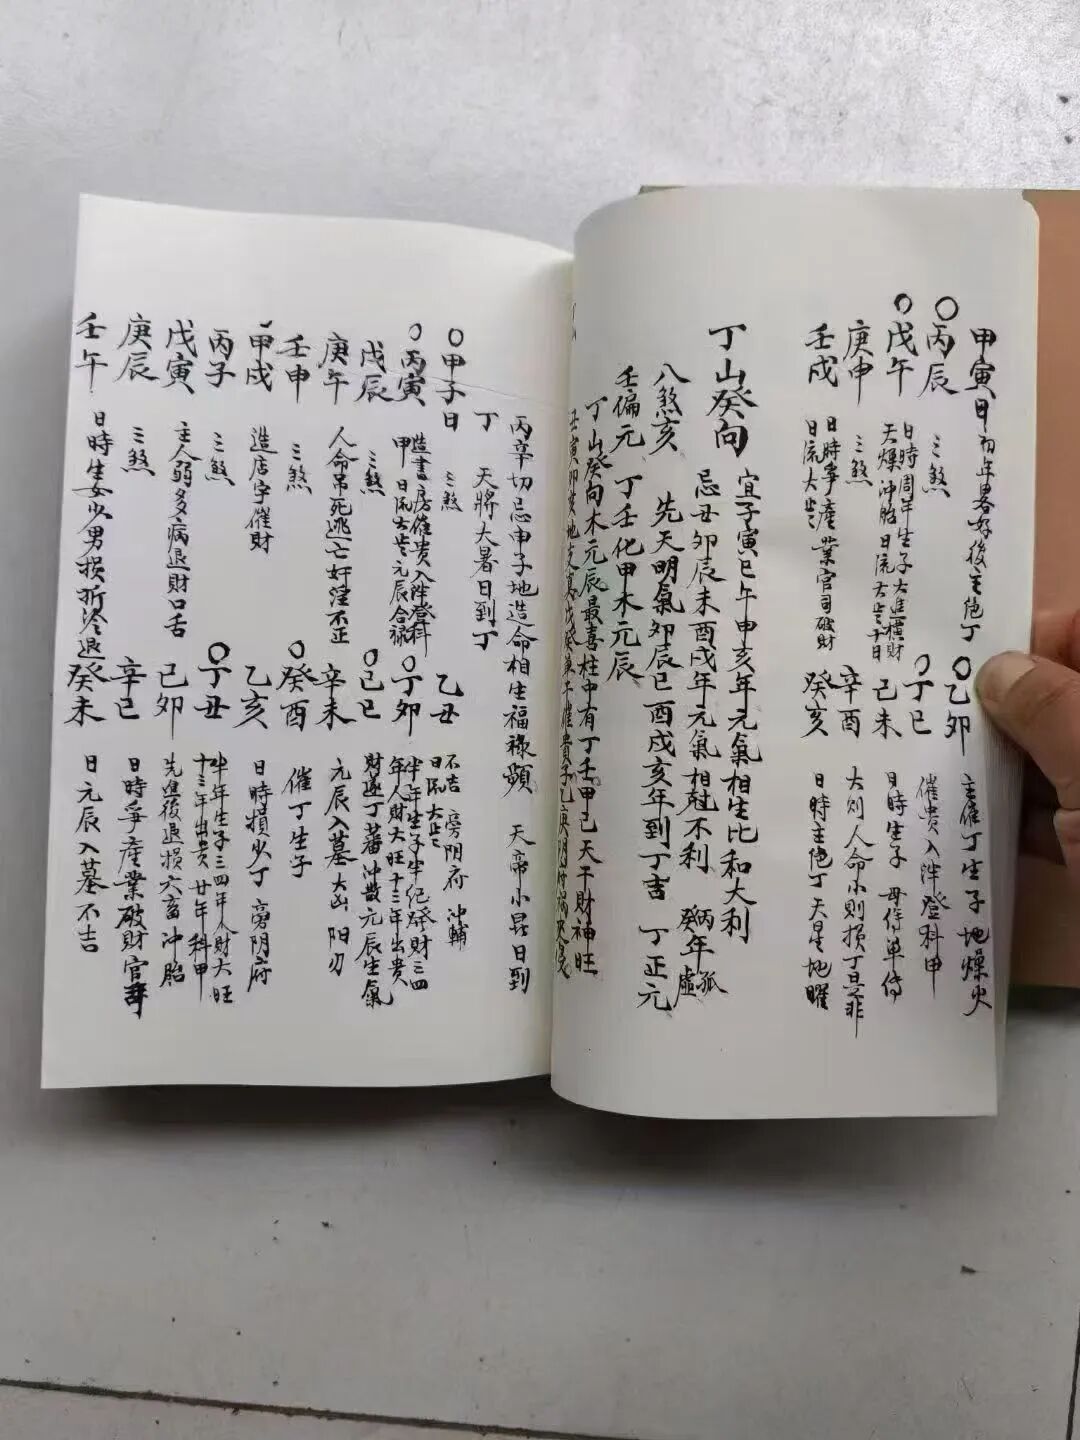 甲寅日 初年畧好後主绝丁
丙辰 三煞
戊午 日時周年生子大進橫財
天燥沖胎日流太歲十日
庚申 三煞
壬戌 日時爭產業官司破財
日流太歲
乙卯 主催丁生子地燥火
丁巳 催貴入泮登科甲
己未 日時生子 母傍單傳
辛酉 大則人命小則損丁是非
癸亥 日時主绝丁天星地曜
丁山癸向 宜子寅巳午申亥年元氣相生比和大利
忌丑卯辰未酉戌年元氣相尅不利 丙年孤
癸年虛
八煞亥 先天明氣卯辰巳酉戌亥年到丁吉 丁正元
壬偏元 丁壬化甲木元辰
丁山癸向木元辰最喜柱中有丁壬甲己天干財神旺
丑寅卯
丙辛切忌申子地造命相生福祿顯 天帝小昆日到
丁 天將大暑日到丁
甲子日 三煞
丙寅 造書房催貴入泮登科
甲 日流太歲元辰合禄
戊辰 三煞
庚午 人命吊死逃亡奸淫不正
壬申 三煞
甲戌 造店宇催財
丙子 三煞
戊寅 主人弱多病退財口舌
庚辰 三煞
壬午 日時生女少男損折冷退
乙丑 不吉 旁阴府 沖輔
日流太歲
丁卯 半年生子半纪發財三四
年人財大旺十三年出貴
己巳 財逐丁蕃沖散元辰生氣
辛未 元辰入墓大凶阳刃
癸酉 催丁生子
乙亥 日時損少丁 旁阴府
丁丑 半年生子三四年人財大旺
十三年出貴 廿年科甲
己卯 先進後退損六畜沖胎
辛巳 日時爭產業破財官司
癸未 日元辰入墓不吉